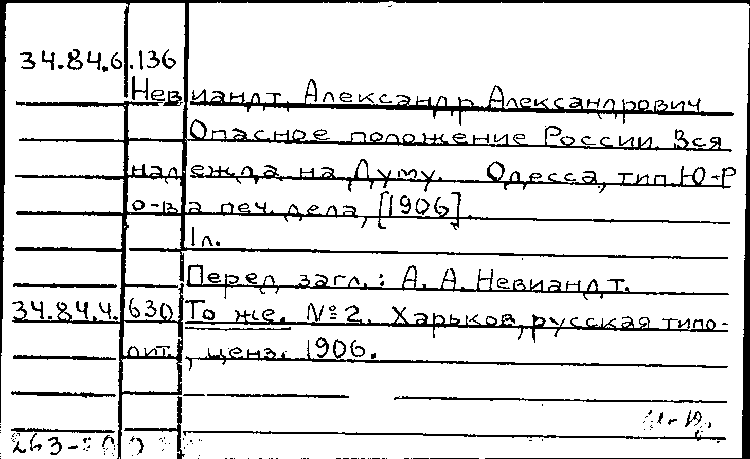 34.84.6.136
Невиандт, Александр Александрович
Опасное положение России. Вся
надежда на Думу. Одесса, тип. Ю-Р
о-ва печ. дела, [1906].
1л.
Перед загл.: А. А. Невиандт.
34.84.4.630 То же. №2. Харьков, русская типо-
лит., ценз. 1906.